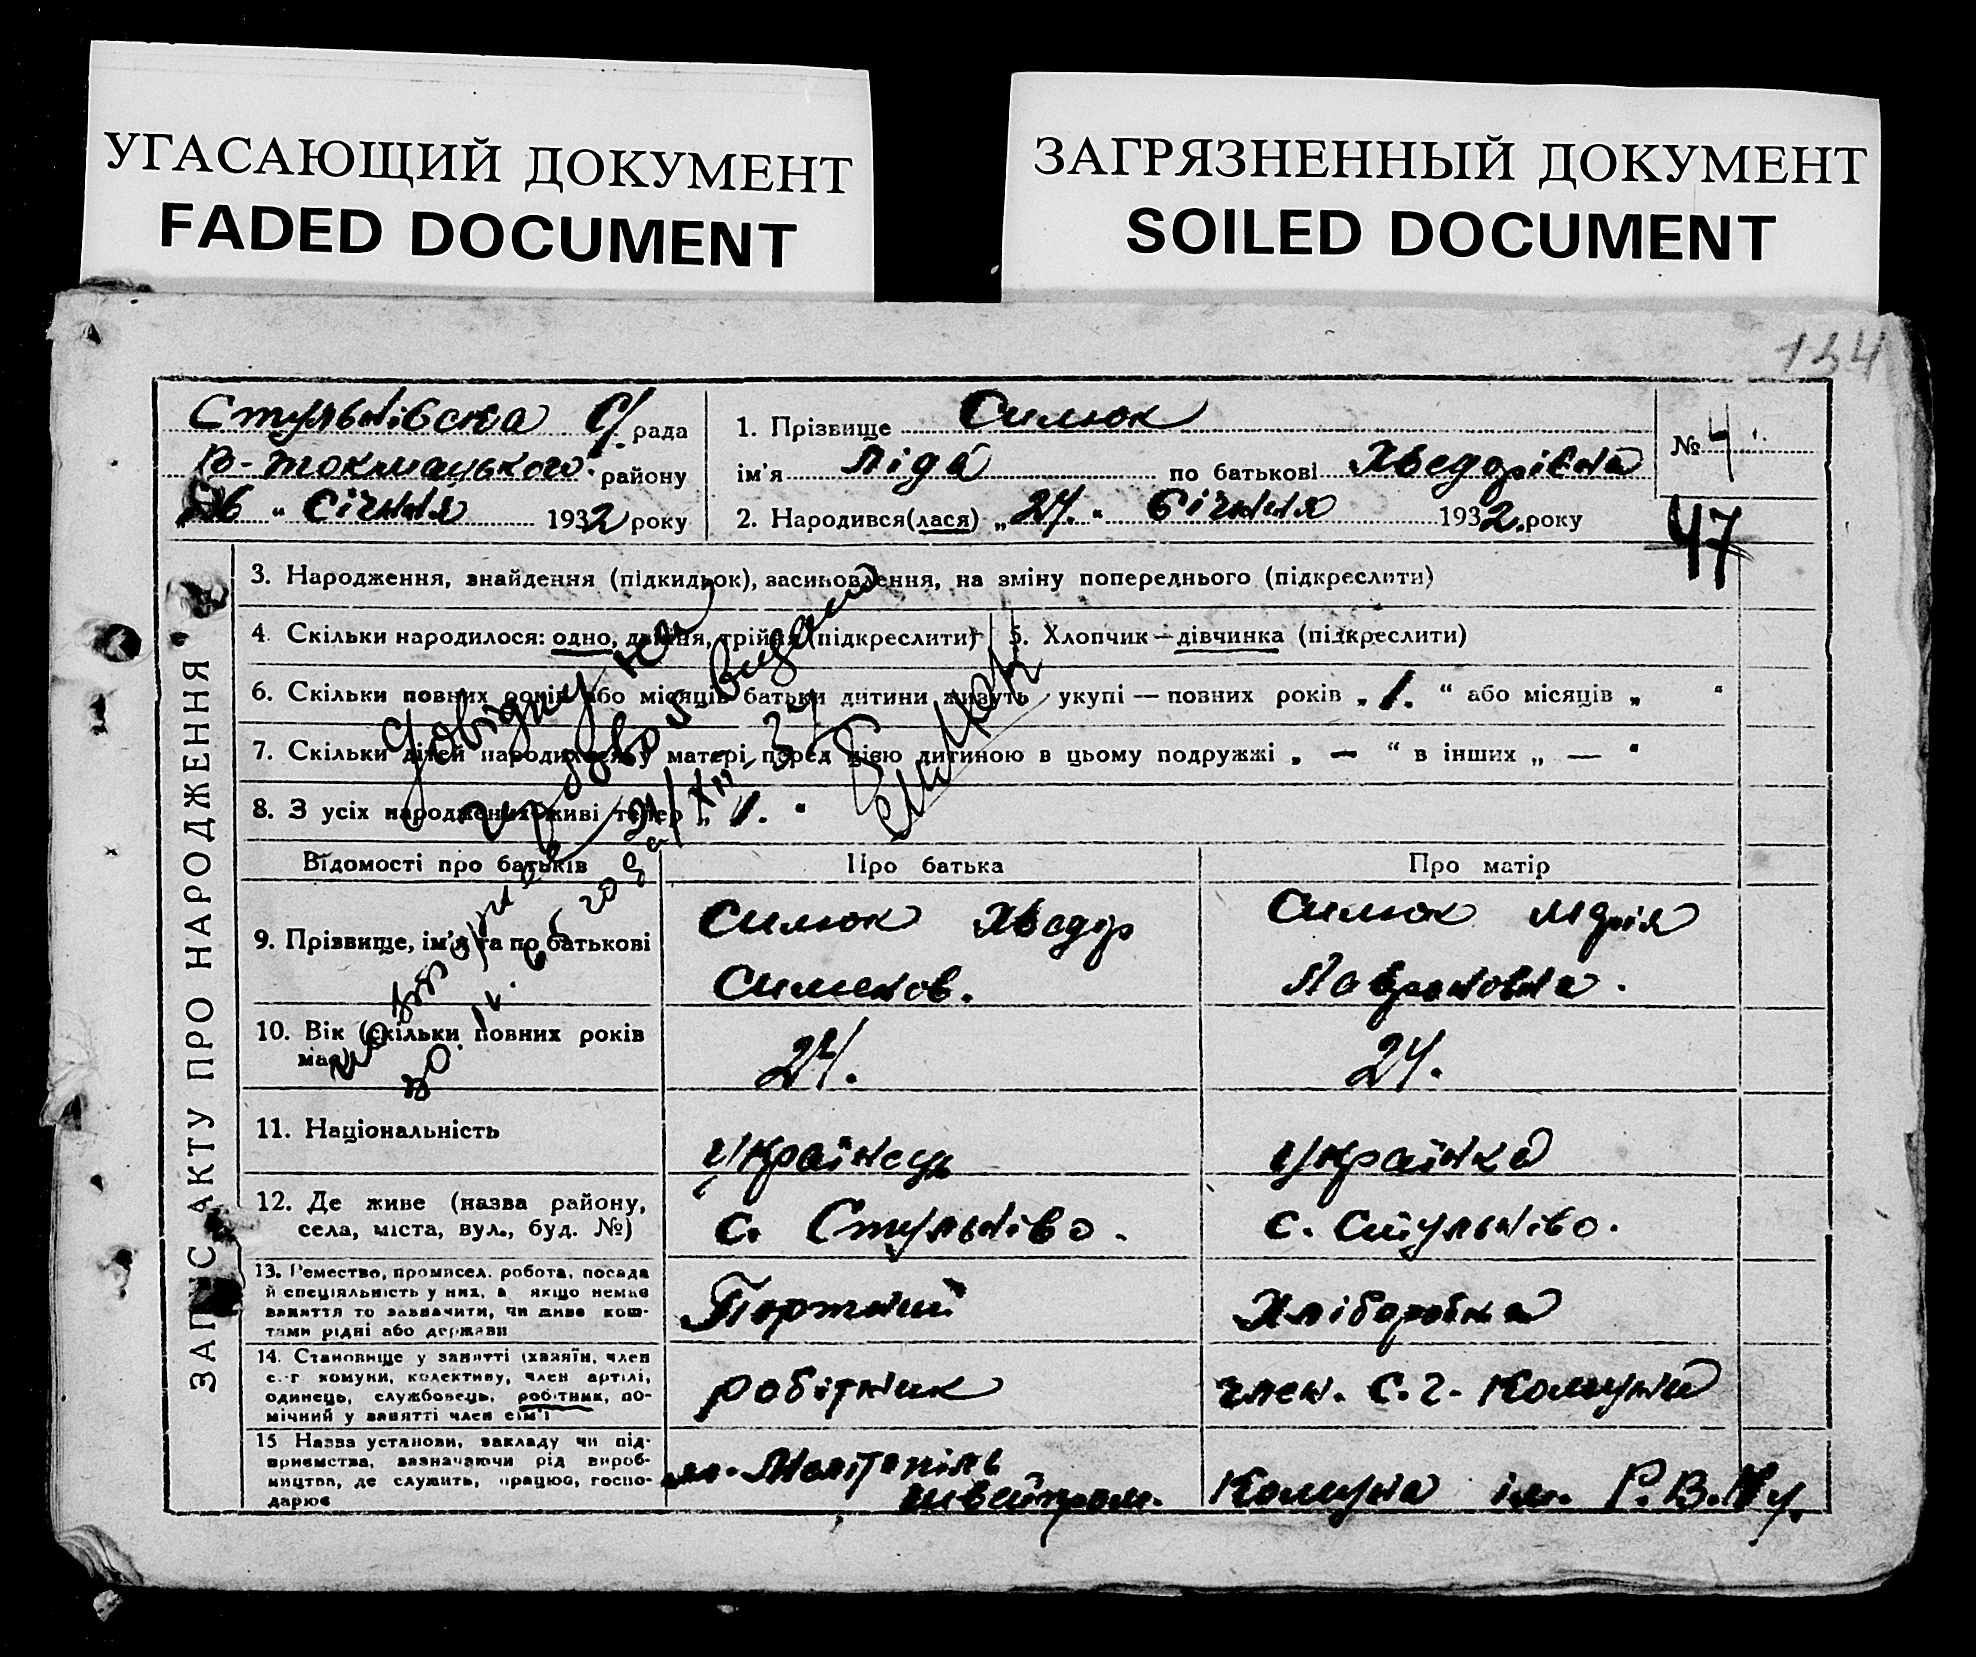 УГАСАЮЩИЙ ДОКУМЕНТ
FADED DOCUMENT
ЗАГРЯЗНЕННЫЙ ДОКУМЕНТ
SOILED DOCUMENT
134
Стульнівська С/рада
В-Токмацького району
26 " Січня 1932 року
1. Прізвище Силюк
ім'я Ліда по батькові Хведорівна
2. Народився(лася) „24." Січня 1932. року
№ 4
47
ЗАПИС АКТУ ПРО НАРОДЖЕННЯ
3. Народження, знайдення (підкидьок), засиновлення, на зміну попереднього (підкреслити)
4. Скільки народилося: одно, двійня, трійня (підкреслити)
5. Хлопчик — дівчинка (підкреслити)
6. Скільки повних років або місяців батьки дитини живуть укупі — повних років „ 1. " або місяців „ "
7. Скільки дітей народилося у матері перед цією дитиною в цьому подружжі „ — " в інших „ — "
8. З усіх народжених живі тепер „ 1. "
Відомості про батьків
Про батька
Про матір
9. Прізвище, ім'я та по батькові
Силюк Хведір
Сименов.
Силюк Марія
Лавроновна.
10. Вік (скільки повних років має)
24.
24.
11. Національність
Українець
Українка
12. Де живе (назва району,
села, міста, вул., буд. №)
с. Стульніво.
с. Стульніво.
13. Ремество, промисел, робота, посада
й спеціяльність у них, а якщо немає
заняття то зазначити, чи живе кош-
тами рідні або держави
Портний
Хліборобка
14. Становище у занятті (хазяїн, член
с.-г комуни, колективу, член артілі,
одинець, службовець, робітник, по-
мічний у занятті член сім'ї
робітник
член. С.г. Комуни
15 Назва установи, закладу чи під-
приємства, зазначаючи рід вироб-
ництва, де служить, працює, госпо-
дарює
м. Мелітопіль
швейпром.
Комуна ім. Р.В.